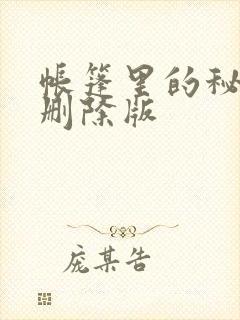 帐篷里的秘
删除版
庞某告